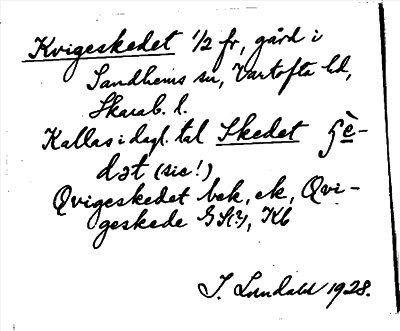 Kvigeskedet 1/2 fr, gård i
Sandhems sn, Vartofta hd,
Skarab. l.
Kallas i dagl. tal Skedet ʃè-
dət (sic!)
Qvigeskedet bek, ek, Qvi-
geskede GS(?), Kb
J. Lundahl 1928.